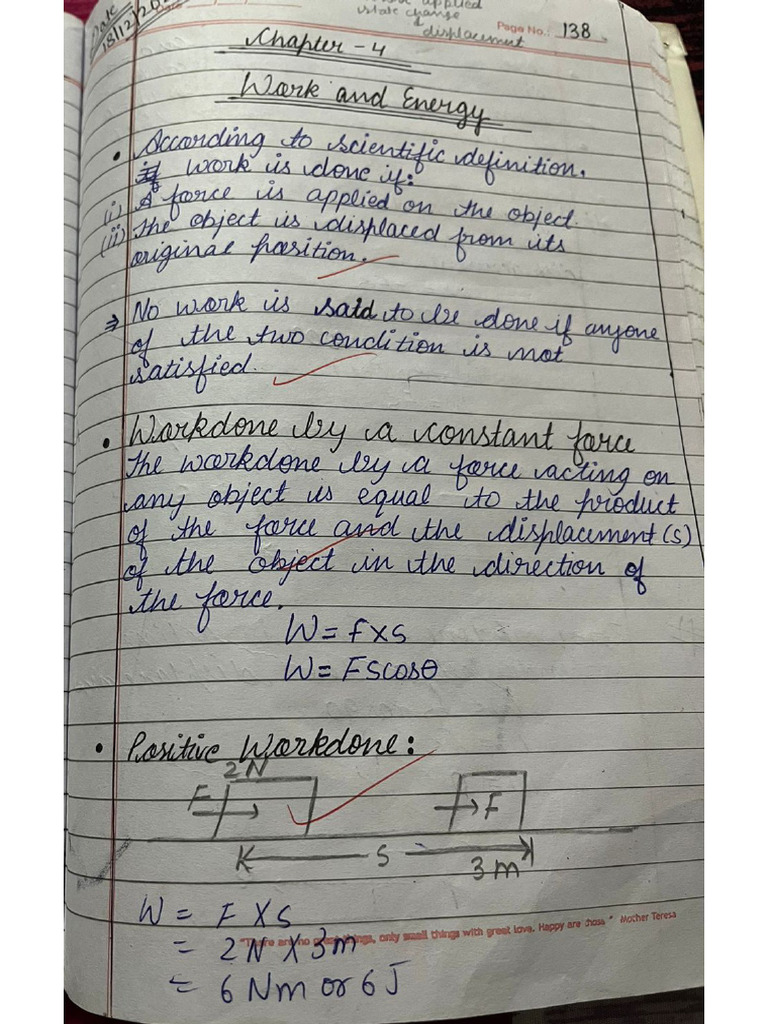 Date
18/12/20
applied
state change
displacement
Page No.: 138
Chapter - 4
Work and Energy
• According to scientific definition,
work is done if:
(i) A force is applied on the object.
(ii) The object is displaced from its
original position.
⇒ No work is said to be done if anyone
of the two condition is not
satisfied.
• Workdone by a constant force
The workdone by a force acting on
any object is equal to the product
of the force and the displacement (s)
of the object in the direction of
the force.
W = F×s
W = FScosθ
• Positive Workdone:
2N
F
F
S
3m
W = F X S
"There are no great things, only small things with great love. Happy are those" Mother Teresa
= 2N X 3m
= 6 Nm or 6 J